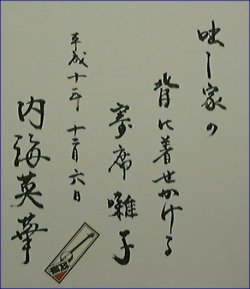 咄し家の
背に着せかける
寄席囃子
平成十年 十一月六日
内海英華